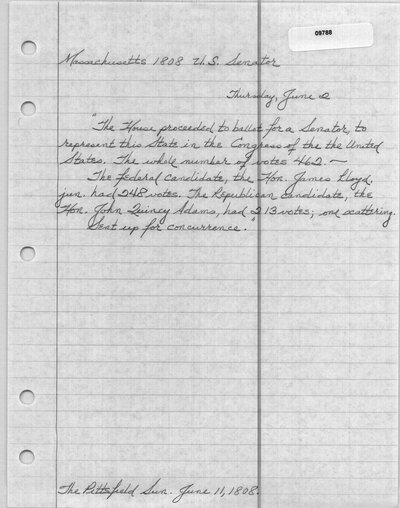 09788
Massachusetts 1808 U.S. Senator
Thursday, June 2
"The House proceeded to ballot for a Senator, to
represent this State in the Congress of the the United
States. The whole number of votes 462. —
The federal candidate, the Hon. James Lloyd,
jun. had 248 votes. The Republican candidate, the
Hon. John Quincy Adams, had 213 votes; one scattering.
Sent up for concurrence."
The Pittsfield Sun. June 11, 1808.